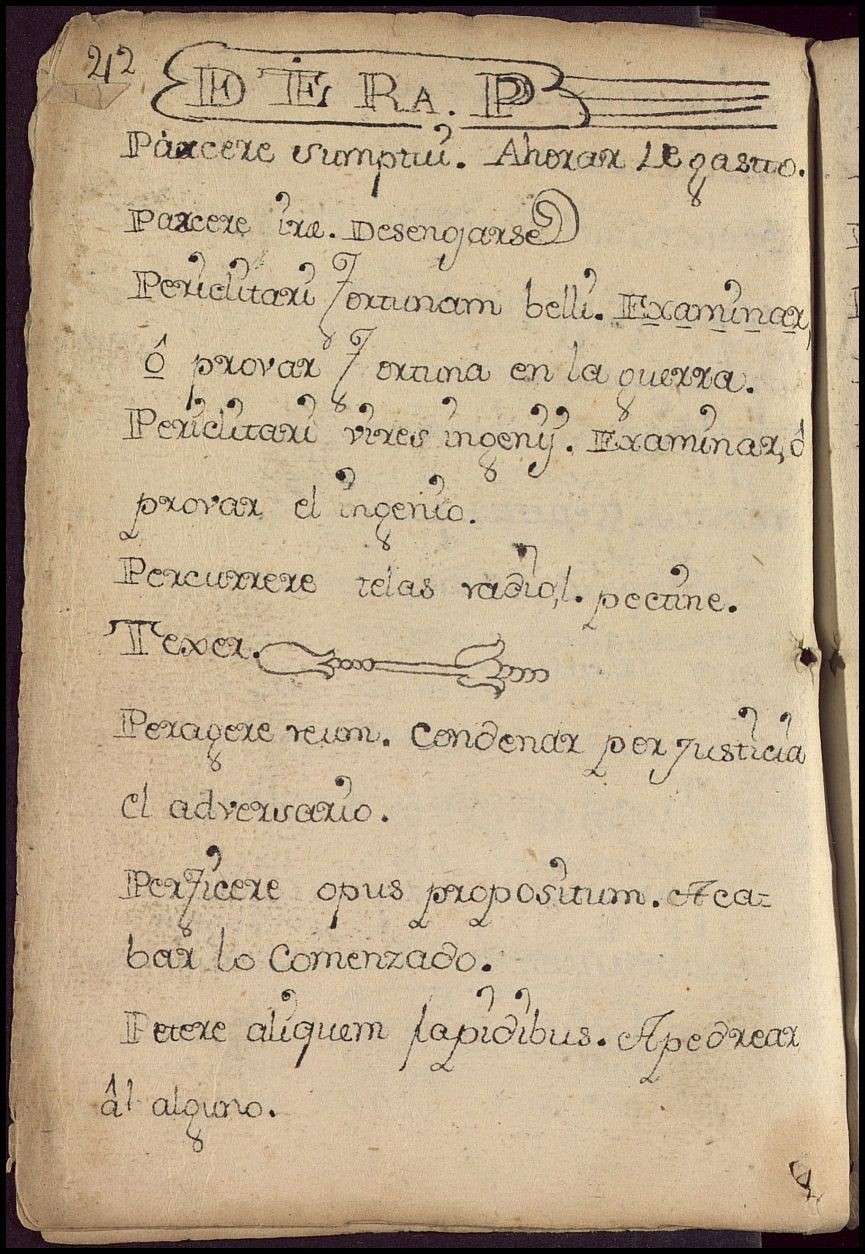 42
DE LA P
Parcere sumptui. Ahorar de gasto.
Parcere irae. Desenojarse
Periclitari fortunam belli. Examinar,
ô provar fortuna en la guerra.
Periclitari vires ingenij. Examinar, ô
provar el ingenio.
Percurrere telas radio, l. pectine.
Texer.
Peragere reum. Condenar per justicia
el adversario.
Perficere opus propositum. Aca=
bar lo Comenzado.
Petere aliquem lapidibus. Apedrear
âl alguno.